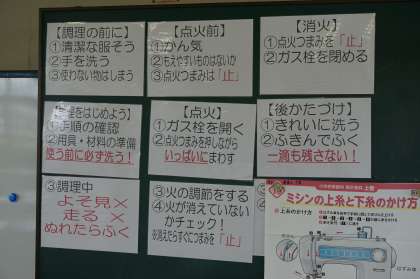 【調理の前に】
①清潔な服そう
②手を洗う
③使わない物はしまう
【点火前】
①かん気
②もえやすいものはないか
③点火つまみは「止」
【消火】
①点火つまみを「止」
②ガス栓を閉める
をはじめよう】
①手順の確認
②用具・材料の準備
使う前に必ず洗う！
【点火】
①ガス栓を開く
②点火つまみを押しながら
いっぱいにまわす
【後かたづけ】
①きれいに洗う
②ふきんでふく
一滴も残さない！
③調理中
よそ見×
走る×
ぬれたらふく
③火の調節をする
④火が消えていない
かチェック！
※消えたらすぐにつまみを「止」
ミシンの上糸と下糸のかけ方
上糸のかけ方